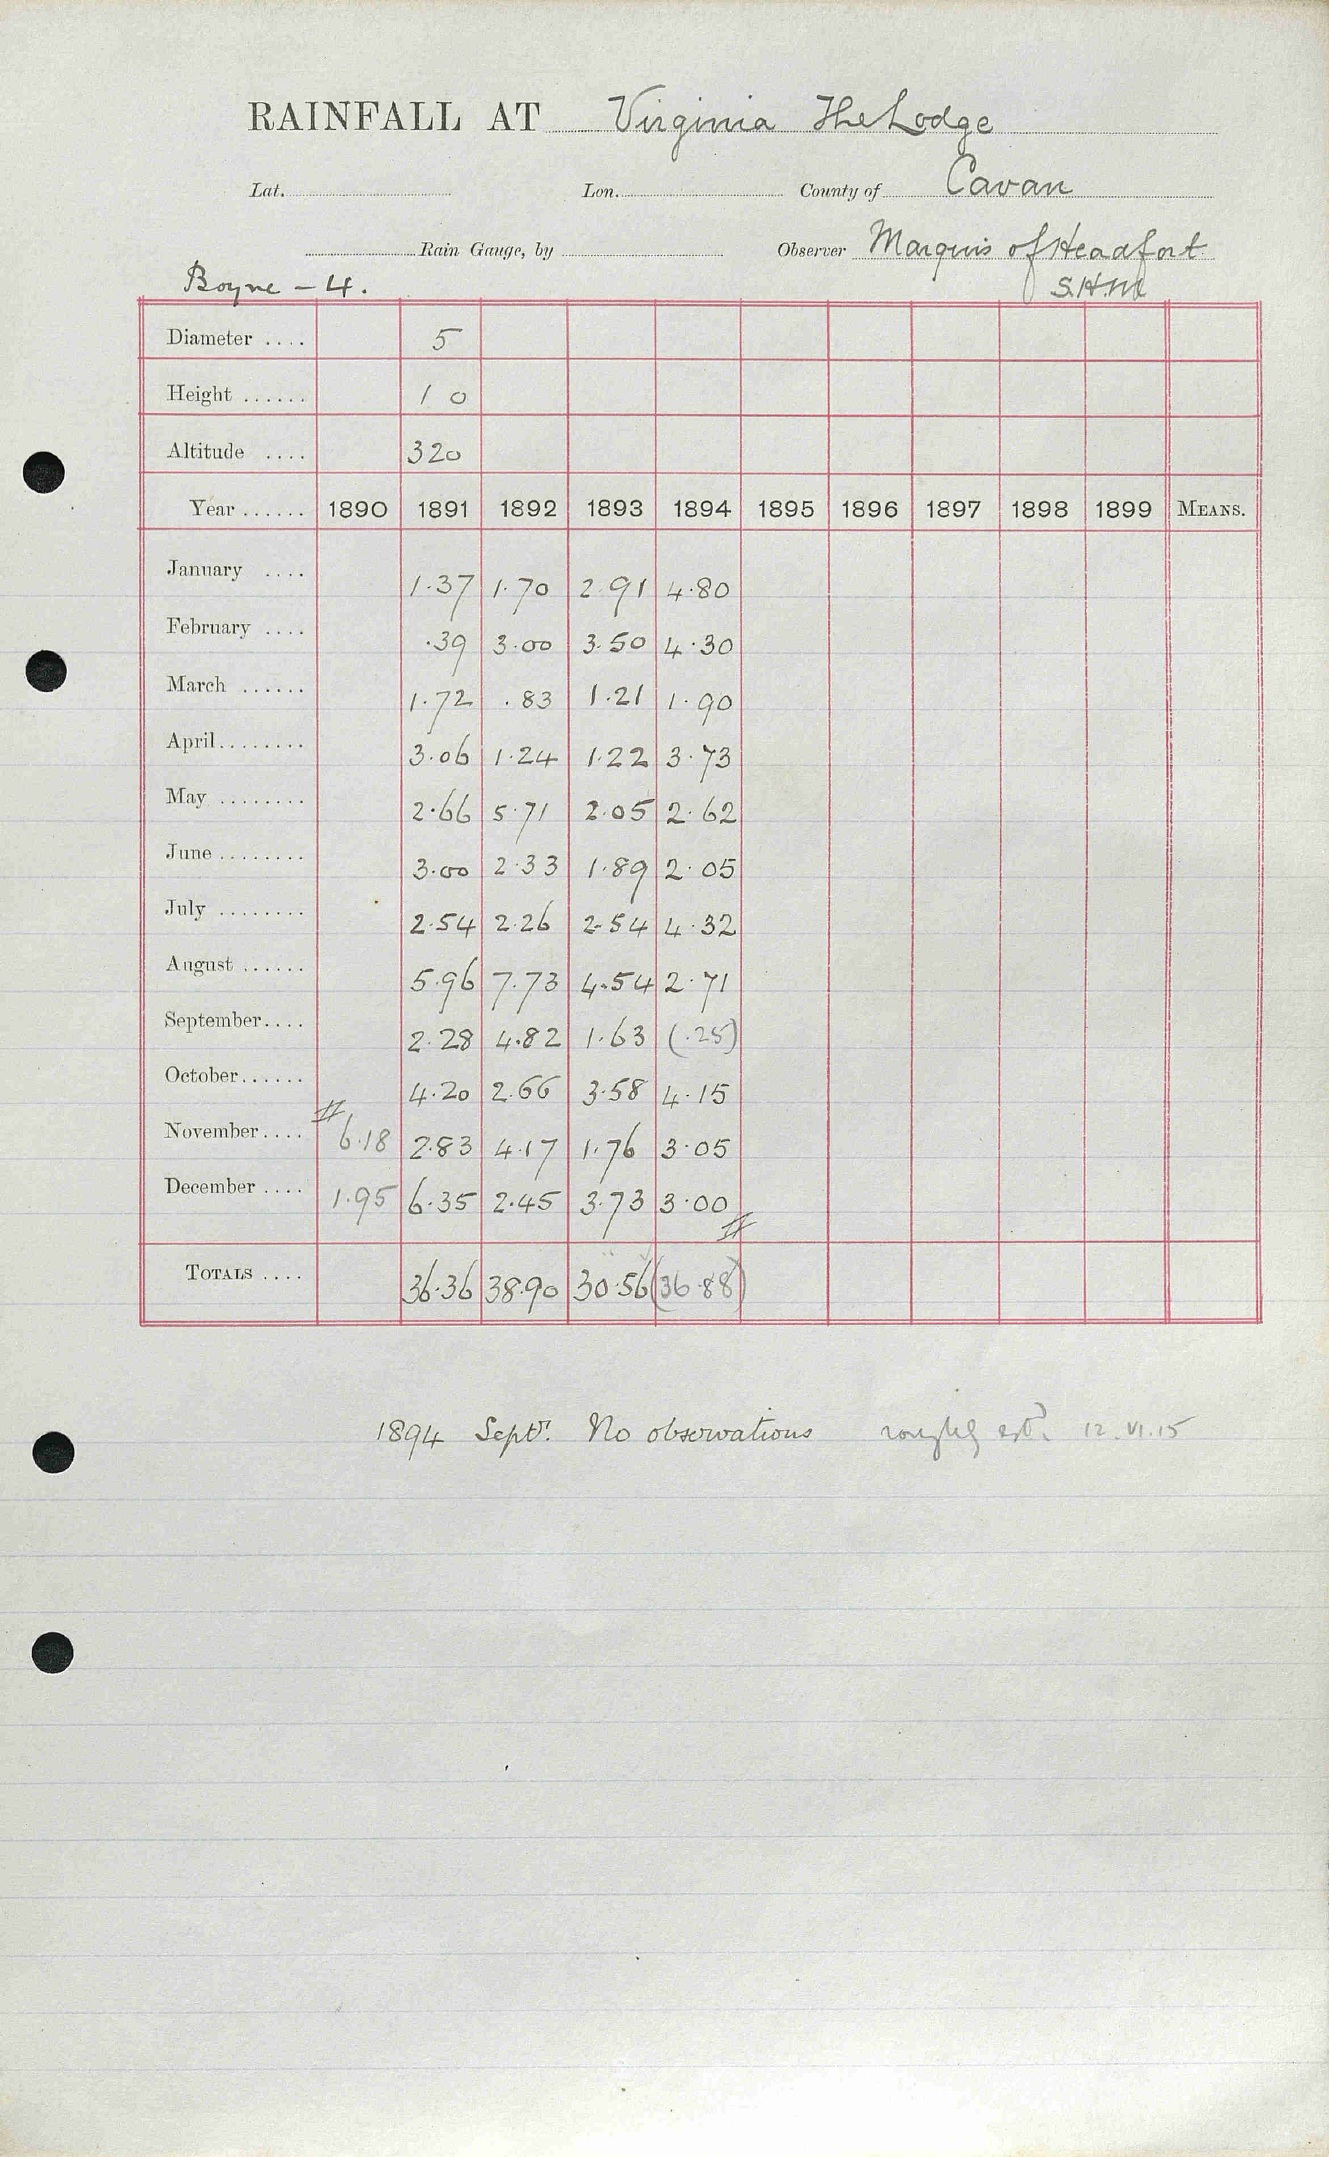 RAINFALL AT Virginia The Lodge
Lat. Lon. County of Cavan
Rain Gauge, by Observer Marquis of Headfort
Boyne - 4. S.H.M
Diameter .... 5
Height ...... 1 0
Altitude .... 320
Year ...... 1890 1891 1892 1893 1894 1895 1896 1897 1898 1899 MEANS.
January .... 1.37 1.70 2.91 4.80
February .... .39 3.00 3.50 4.30
March ...... 1.72 .83 1.21 1.90
April........ 3.06 1.24 1.22 3.73
May ........ 2.66 5.71 2.05 2.62
June ........ 3.00 2.33 1.89 2.05
July ........ 2.54 2.26 2.54 4.32
August ...... 5.96 7.73 4.54 2.71
September.... 2.28 4.82 1.63 (.25)
October...... 4.20 2.66 3.58 4.15
November.... 6.18 2.83 4.17 1.76 3.05
December .... 1.95 6.35 2.45 3.73 3.00
TOTALS .... 36.36 38.90 30.56 (36.88)
1894 Septr. No observations roughly estd. 12.VI.15